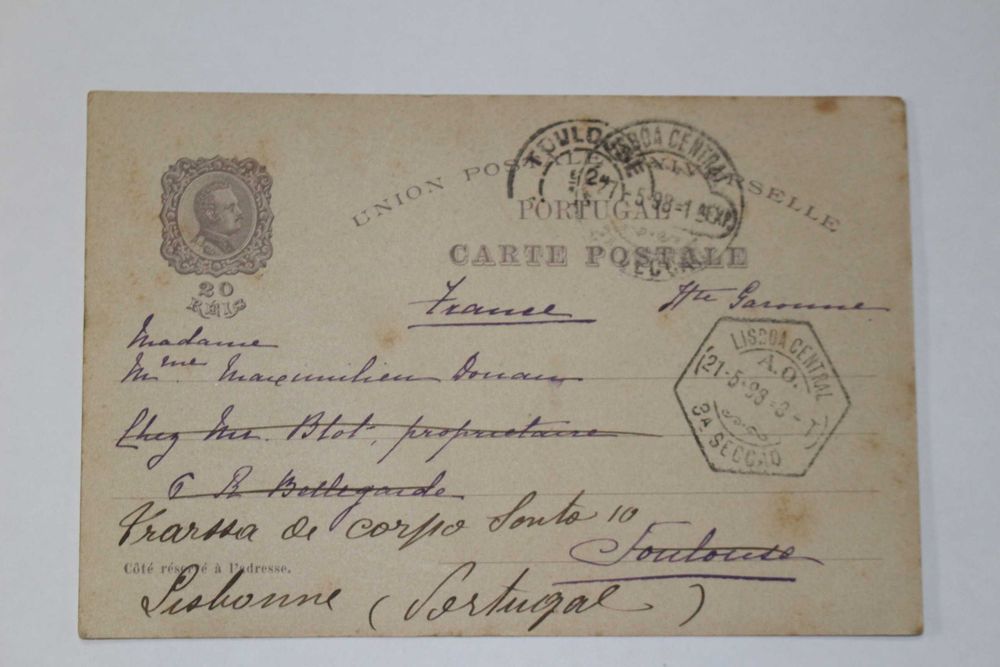 UNION POSTALE UNIVERSELLE
PORTUGAL
CARTE POSTALE
TOULOUSE
LISBOA CENTRAL
5-98-1
SECÇÃO
20
RÉIS
France Hte Garonne
Madame
Mme Maximilien Douau
Chez Mr. Blot, propriétaire
6 R Bellegarde
LISBOA CENTRAL
A.O.
21-5-98-8-T
3A SECÇÃO
de corpo Santo 10
Toulouse
Côté réservé à l'adresse.
Lisbonne (Portugal)